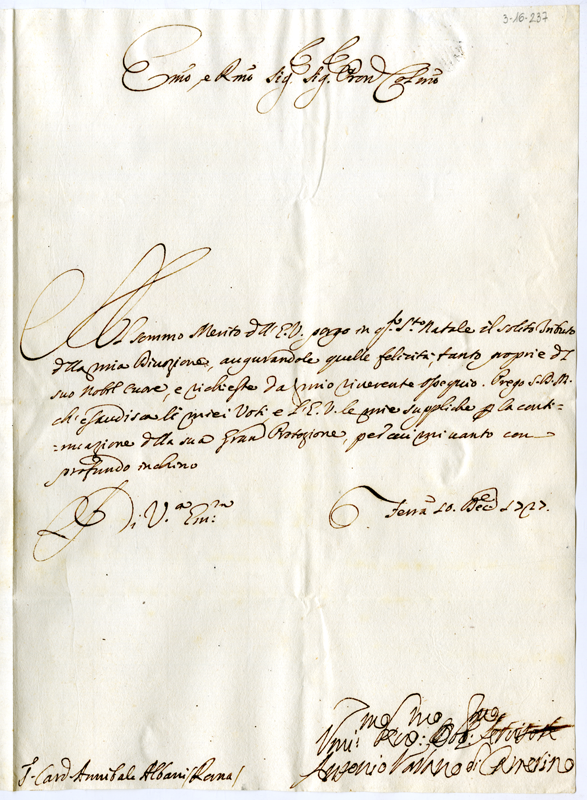 3-16-237
Emo, e Rmo Sig.r Sig.r Pron Colmo
Al Sommo Merito dll' E.V. porgo in q.to S.to Natale il solito Tributo
dlla mia Divozione, augurandole quelle felicità, tanto proprie dl
suo Nobl Cuore, e richieste da mio riverente ossequio. Prego S.D.M.
ch' esaudisca li miei Voti e l'E.V. le mie suppliche p la conti-
=nuazione dlla sua Gran Protezione, per cui mi vanto con
profondo inchino
Di V.a Em:za
Ferra 20. Dec.e 1727.
Vmi: Devo: Obo:
Antonio Varano di Camerino
S.r Card Annibale Albani (Roma)